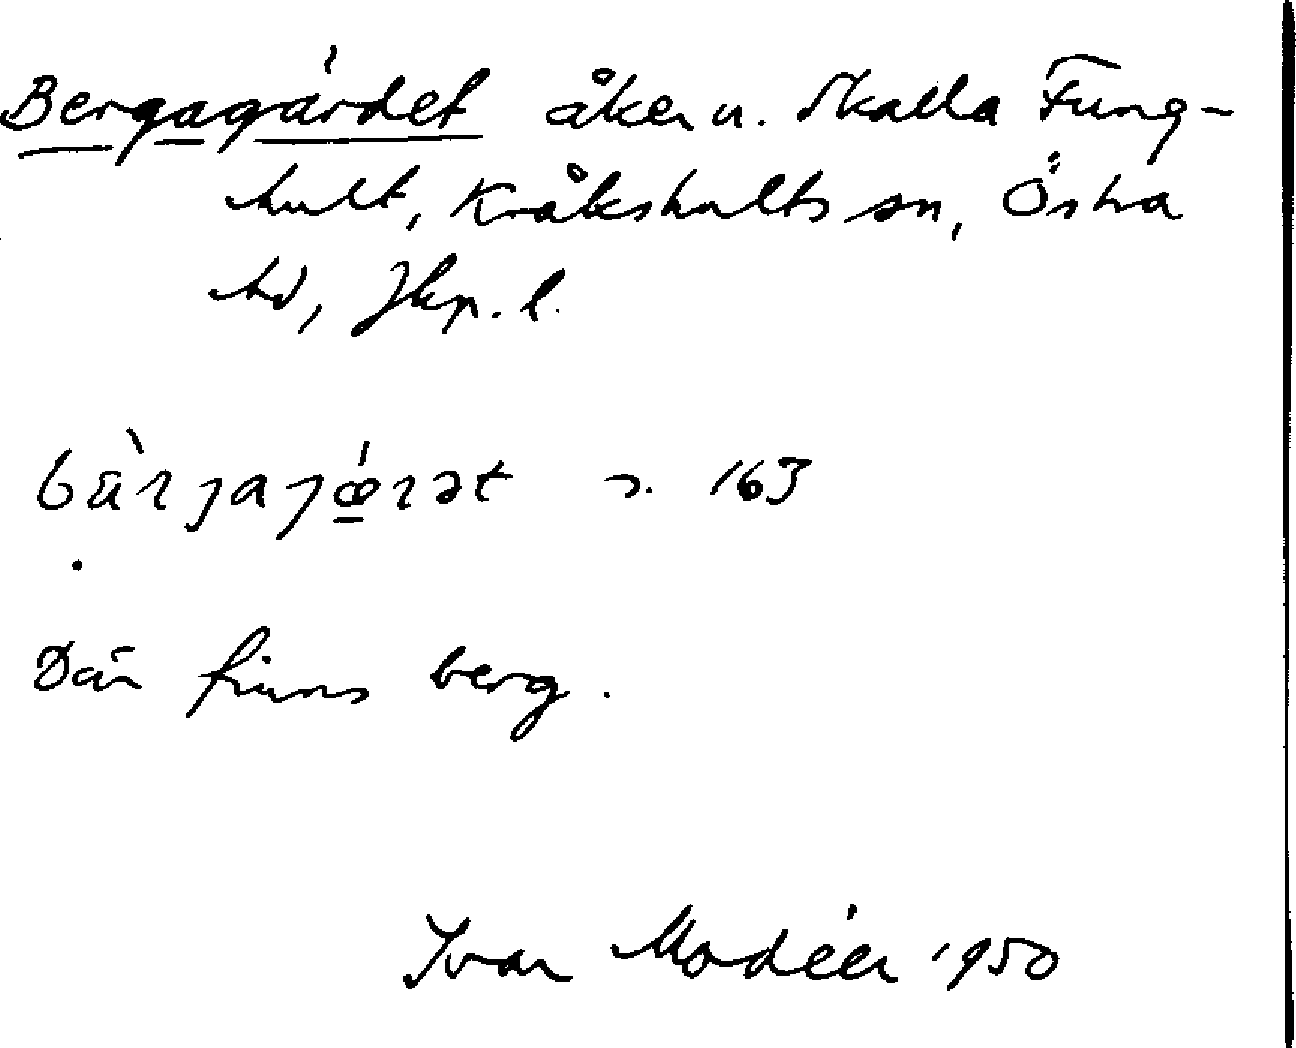 Bergagärdet åker u. Skalla Fung-
hult, Kråkshults sn, Östra
hd, Jkp. l.
bàrjajǿrət s. 163
Där finns berg.
Ivar Modéer 1950